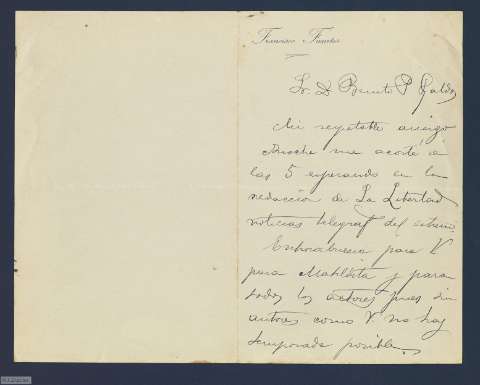 Francisco Fuentes
Sr. D. Benito P Galdos
Mi respetable amigo
Anoche me acosté a
las 5 esperando en la
redacción de La Libertad
noticias telegraf del estreno.
Enhorabuena para V
para Matildita y para
todos los actores pues sin
autores como V no hay
temporada posible.